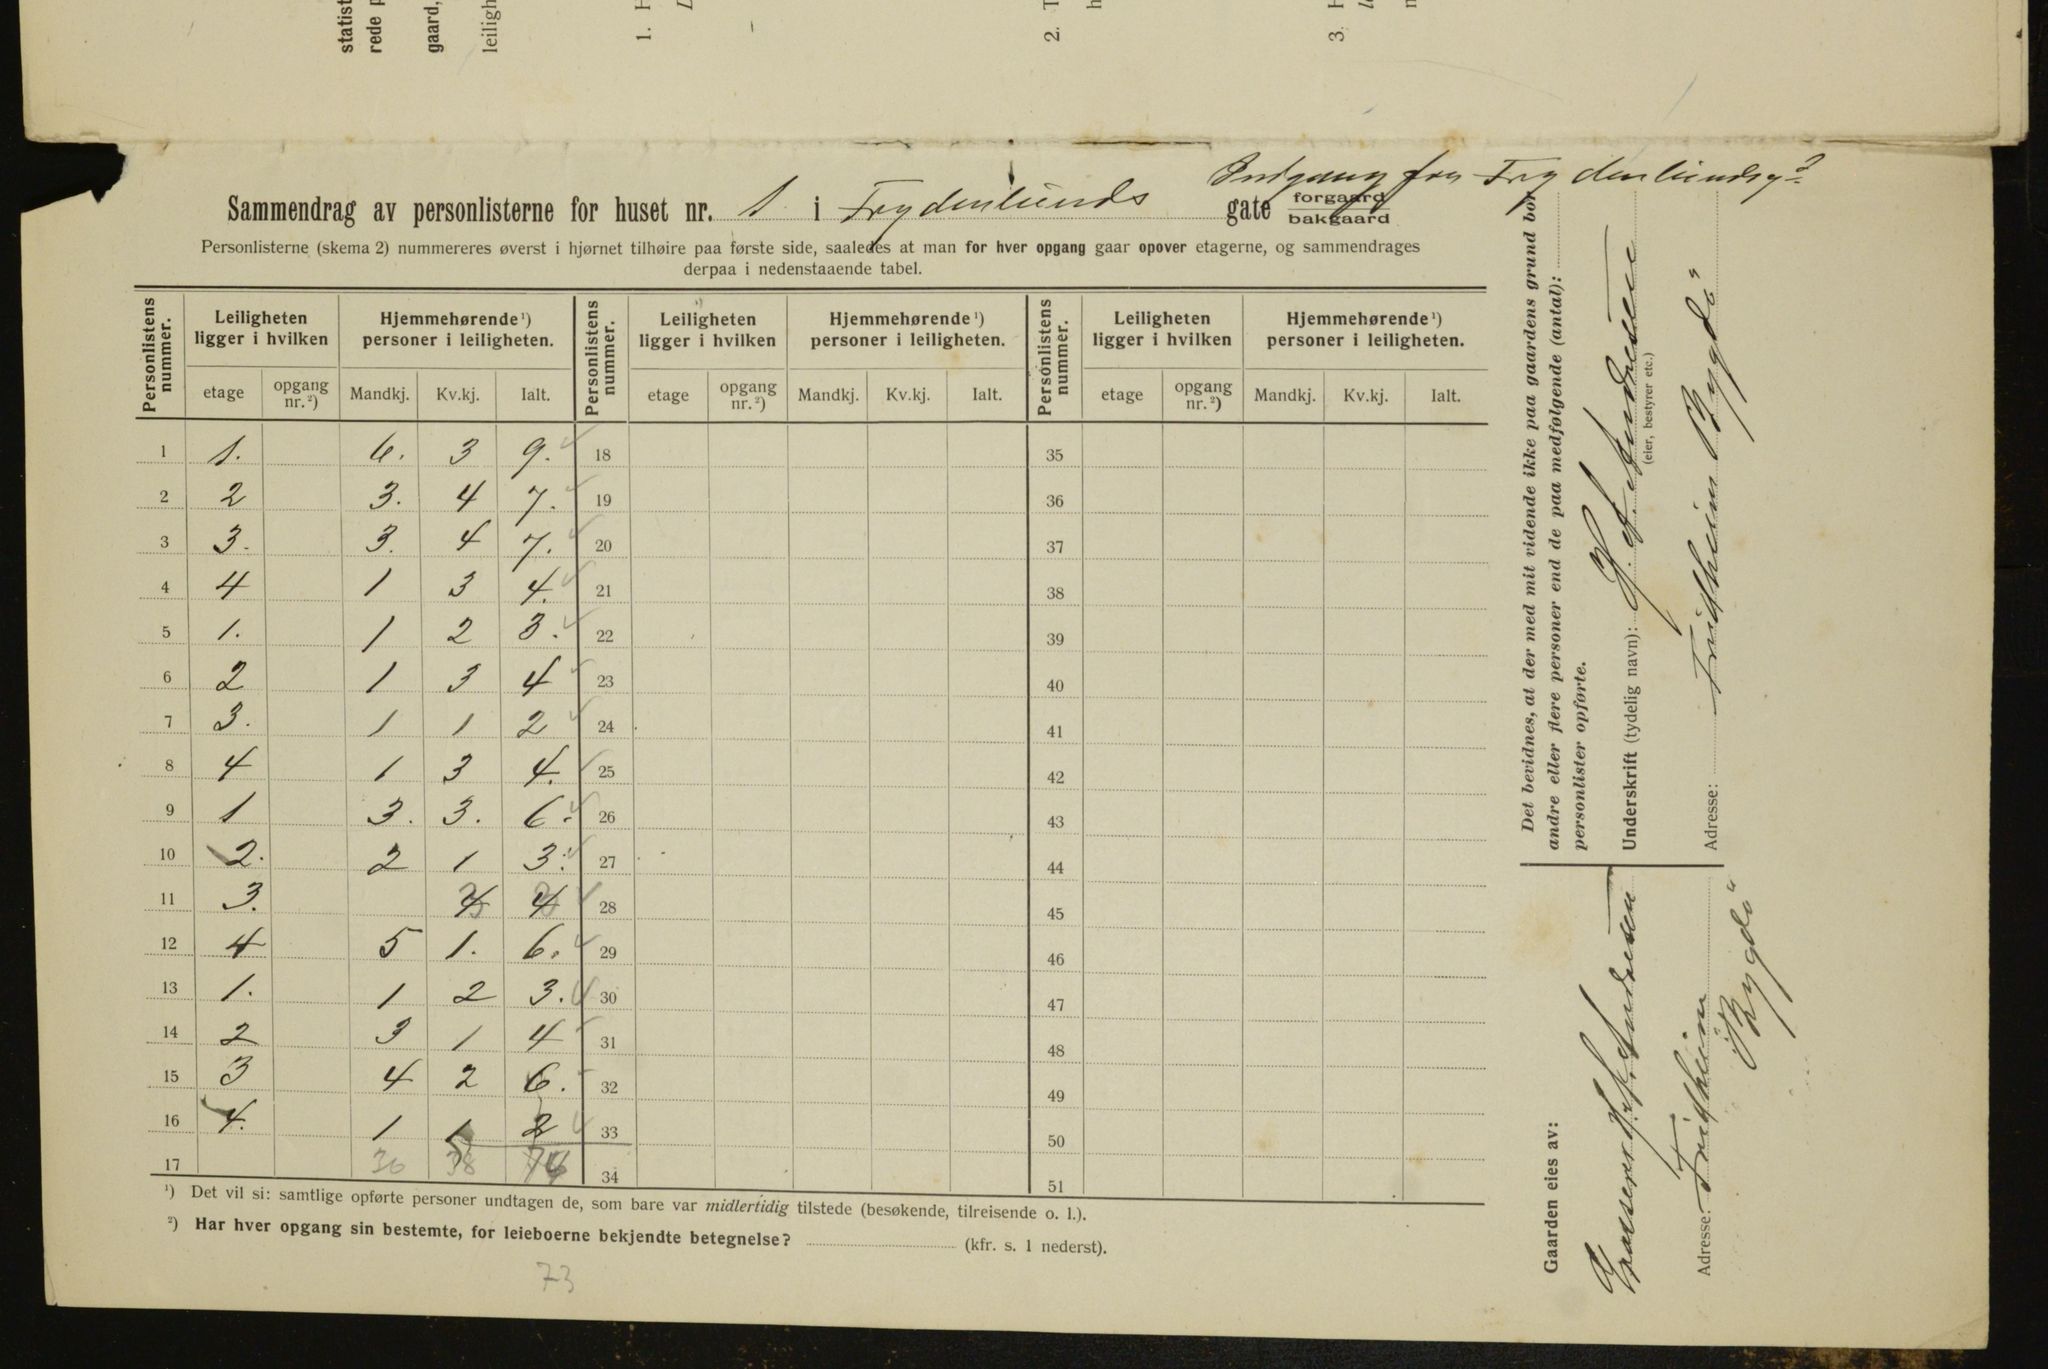 statist
rede p
gaard,
leiligh
1. H
L
2. T
h
3. H
Indgang fra Frydenlundsg?
Sammendrag av personlisterne for huset nr. 1. i Frydenlunds gate forgaard bakgaard
Personlisterne (skema 2) nummereres øverst i hjørnet tilhøire paa første side, saaledes at man for hver opgang gaar opover etagerne, og sammendrages
derpaa i nedenstaaende tabel.
Personlistens nummer. Leiligheten ligger i hvilken Hjemmehørende ¹) personer i leiligheten. Personlistens nummer. Leiligheten ligger i hvilken Hjemmehørende ¹) personer i leiligheten. Personlistens nummer. Leiligheten ligger i hvilken Hjemmehørende ¹) personer i leiligheten.
etage opgang nr. ²) Mandkj. Kv.kj. Ialt. etage opgang nr. ²) Mandkj. Kv.kj. Ialt. etage opgang nr. ²) Mandkj. Kv.kj. Ialt.
1 1. 6. 3 9. 18 35
2 2 3. 4 7. 19 36
3 3. 3. 4 7. 20 37
4 4 1 3 4. 21 38
5 1. 1 2 3. 22 39
6 2 1 3 4 23 40
7 3. 1 1 2 24 41
8 4 1 3 4. 25 42
9 1 3. 3. 6. 26 43
10 2. 2 1 3. 27 44
11 3. 4 4 28 45
12 4 5 1. 6. 29 46
13 1. 1 2 3. 30 47
14 2 3 1 4 31 48
15 3 4 2 6. 32 49
16 4. 1 1 2 33 50
17 36 38 74 34 51
¹) Det vil si: samtlige opførte personer undtagen de, som bare var midlertidig tilstede (besøkende, tilreisende o. l.).
²) Har hver opgang sin bestemte, for leieboerne bekjendte betegnelse? (kfr. s. 1 nederst).
73
Det bevidnes, at der med mit vidende ikke paa gaardens grund bor
andre eller flere personer end de paa medfølgende (antal):
personlister opførte.
Underskrift (tydelig navn): H. A. Andresen
(eier, bestyrer etc.)
Adresse: Fridheim Bygdö
Gaarden eies av:
H. A. Andresen
Adresse: Fridheim
Bygdö